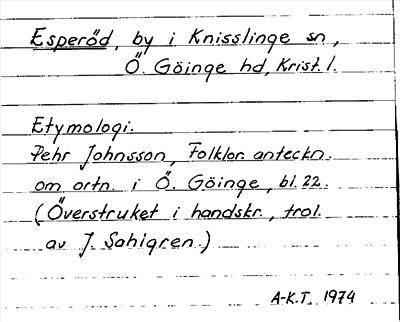 Esperöd, by i Knisslinge sn,
Ö. Göinge hd, Krist. l.
Etymologi.
Pehr Johnsson, Folklor. anteckn.
om ortn. i Ö. Göinge, bl. 22.
(Överstruket i handskr., trol.
av J. Sahlgren.)
A-K.T. 1974